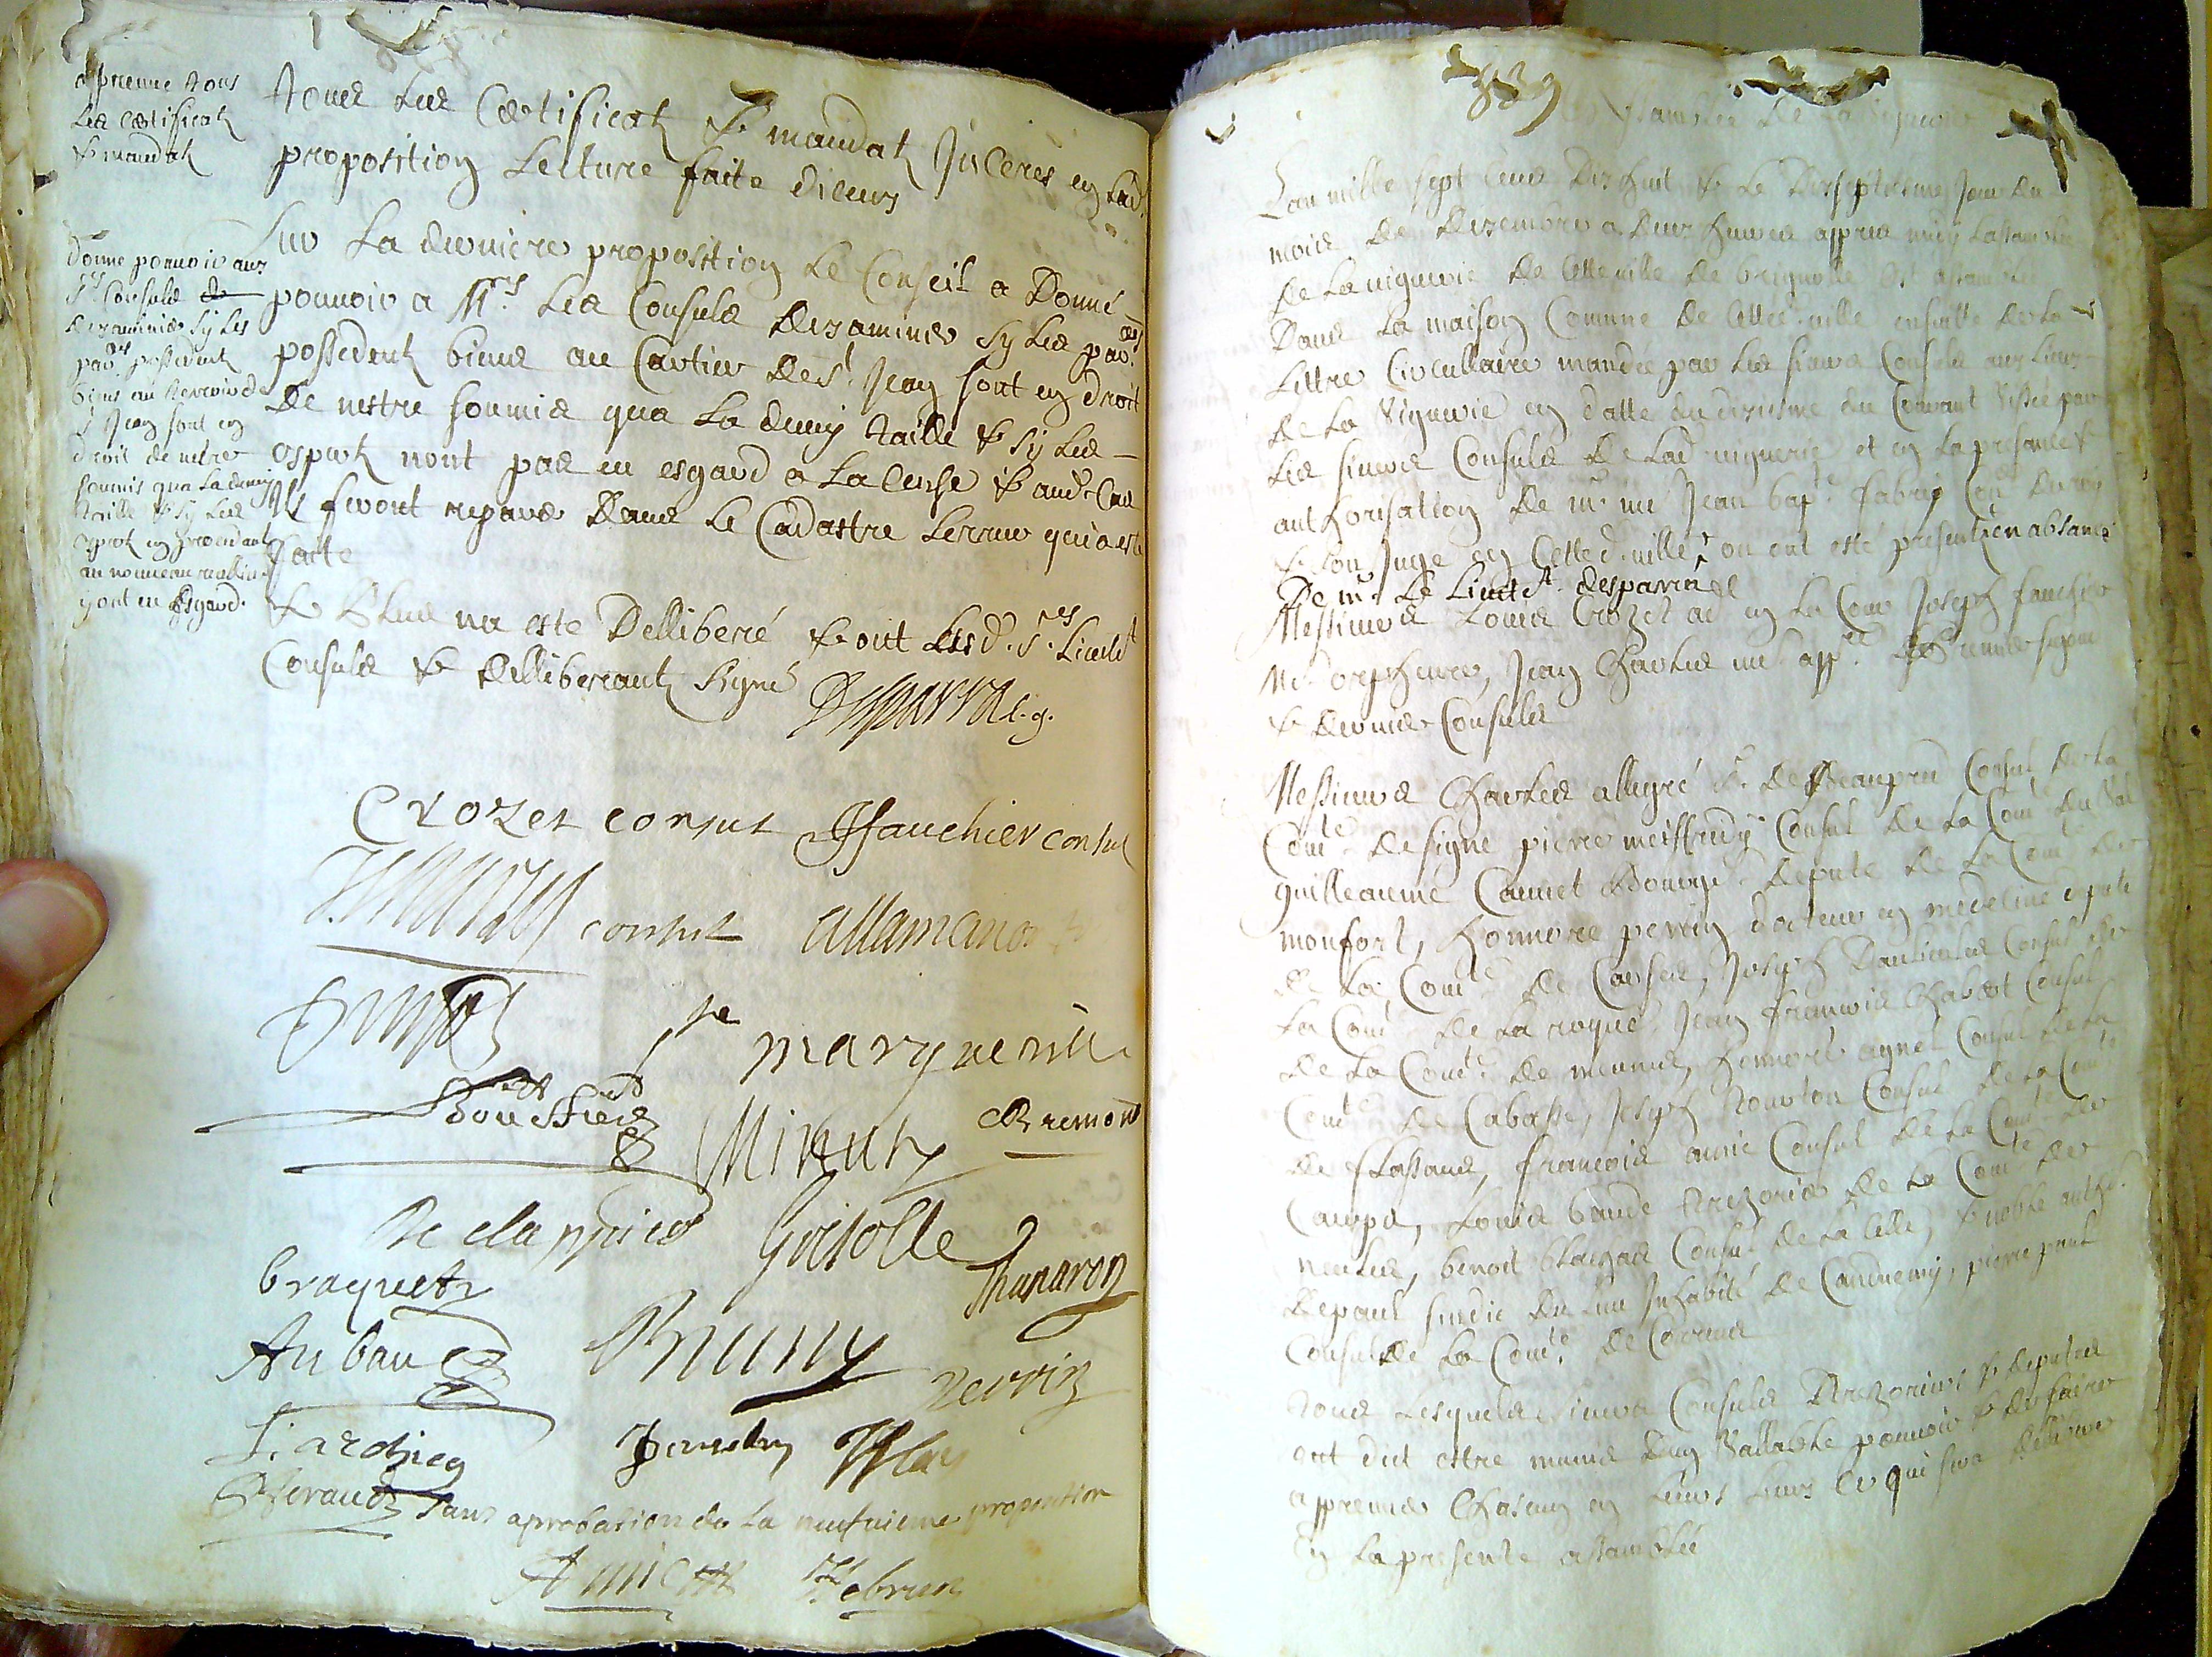 apreuve tous
les certificats
& mandats
tous les certificats & mandats Inceres en lad.
proposition lecture faite diceux
donne pouvoir aux
srs Consuls de
dexaminer sy les
par.ers possedents
biens au terroir de
st Jean sont en
droit de netre
soumis qua la demy
taille & sy les
esperts en procedant
au nouveau
y ont eu Esgard.
sur la derniere proposition le Conseil a Donné
pouvoir a Mrs les Consuls dexaminer sy les par.ers
possedents biens au Cartier de st Jean sont en droit
de nestre soumis qua la demy taille & sy les
esperts nont pas eu esgard a la Cense & aud. Cas
Ils feront repare dans le Cadastre lerreur qui a esté
faite
& Plus na esté Delliberé & ont lesd. srs Lieut.
Consuls & delliberants signé
Desparra l.g.
Crozet consul JFauchier consul
consul allamanon
marguerite
Boutthier
Minuty Bremond
De clappiers Grisolle
braquety Thanaron
Aubau Bruny
Perrin
J. archier
Beraud sans aprobation de la neufvieme proposition
Amic Lebrun
839
assamblée de la viguerie
Lan mille sept cens Dix huit & le Dixseptieme Jour du
mois de dezembre a deux heures appres midy lassamblée
de la viguerie de cette ville de brignolle sest assamblée
Dans la maison Comune de cette d. ville ensuitte de la
Lettre Circullaire mandée par les sieurs Consuls aux lieux
de la Viguerie en datte du dixieme du Courant Visée par
les sieurs Consuls de lad. viguerie et en la presance &
authorisation de mr me Jean bap.te fabry Con.er du roy
& son Juge en cette d. ville ou ont esté presents en absance
De mr Le Lieut.t desparra
Messieurs Louis Crozet ad. en la Cour Joseph fauchier
me orpheure, Jean Charles me app.re premier segond
& dernier Consuls
Messieurs Charles allegre sr de Beaupred Consul de la
Com.té de signe pierre meiffredy Consul de la Com.té du Val
guilleaume Cauvet Bourg. deputé de la Com.té de
monfort, honnore perrin docteur en medecine deputé
de la Com.té de Carses, Joseph Dauticulus Consul de
la Com.té de la roque, Jean francois Chabert Consul
de la Com.té de meunes, honnoré aynes Consul de la
Com.té de Cabasse, Joseph Rouvion Consul de la Com.té
de flassans, francois amic Consul de la Com.té de
Camps, Louis baude tresorier de la Com.té de
neules, benoit blachas Consul de la celle, & noble anth.
depaul sindic du lieu Inhabité de Caudnemy, pierre paul
Consul de la Com.té de Correns
tous lesquels sieurs Consuls tresoriers & deputtes
ont dit estre munis dung Vallable pouvoir & de faire
appreuver Chascun en leurs lieux ce qui sera deliberé
en la presente assamblée